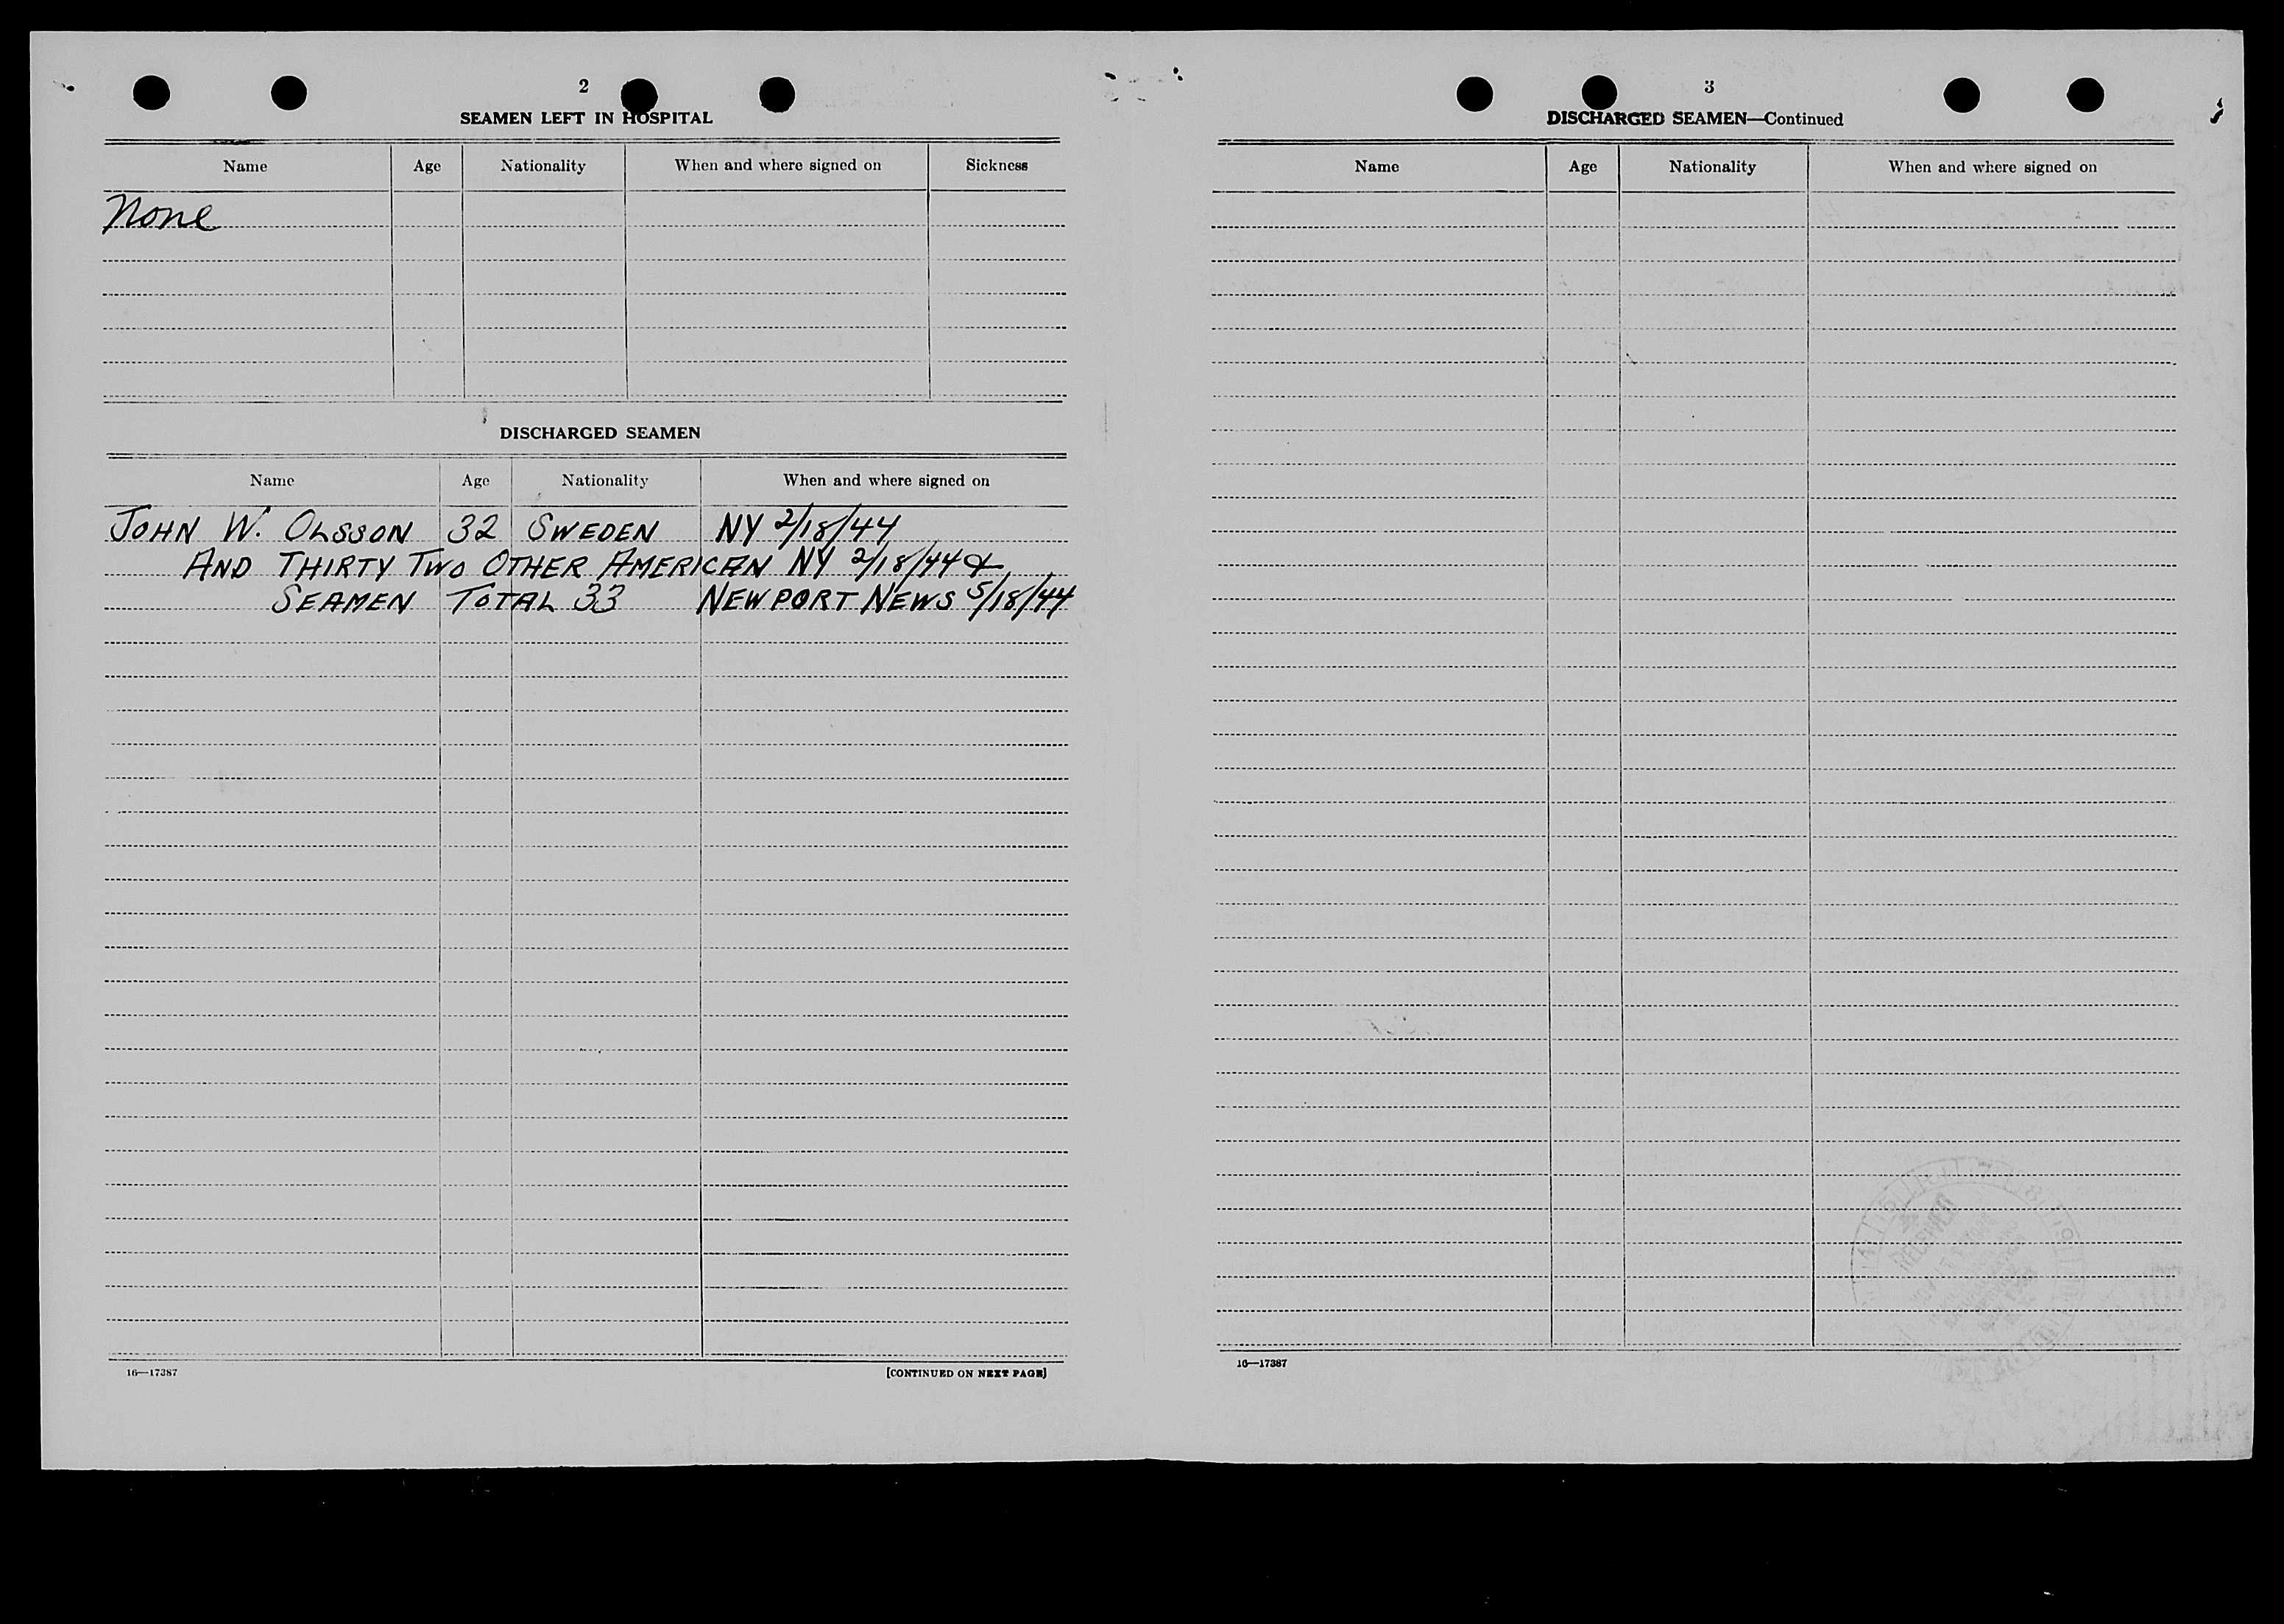 2
SEAMEN LEFT IN HOSPITAL
Name Age Nationality When and where signed on Sickness
None
DISCHARGED SEAMEN
Name Age Nationality When and where signed on
JOHN W. OLSSON 32 SWEDEN NY 2/18/44
AND THIRTY TWO OTHER AMERICAN NY 2/18/44 &
SEAMEN TOTAL 33 NEWPORT NEWS 5/18/44
16—17387 [CONTINUED ON NEXT PAGE]
3
DISCHARGED SEAMEN—Continued
Name Age Nationality When and where signed on
RECEIVED
16—17387